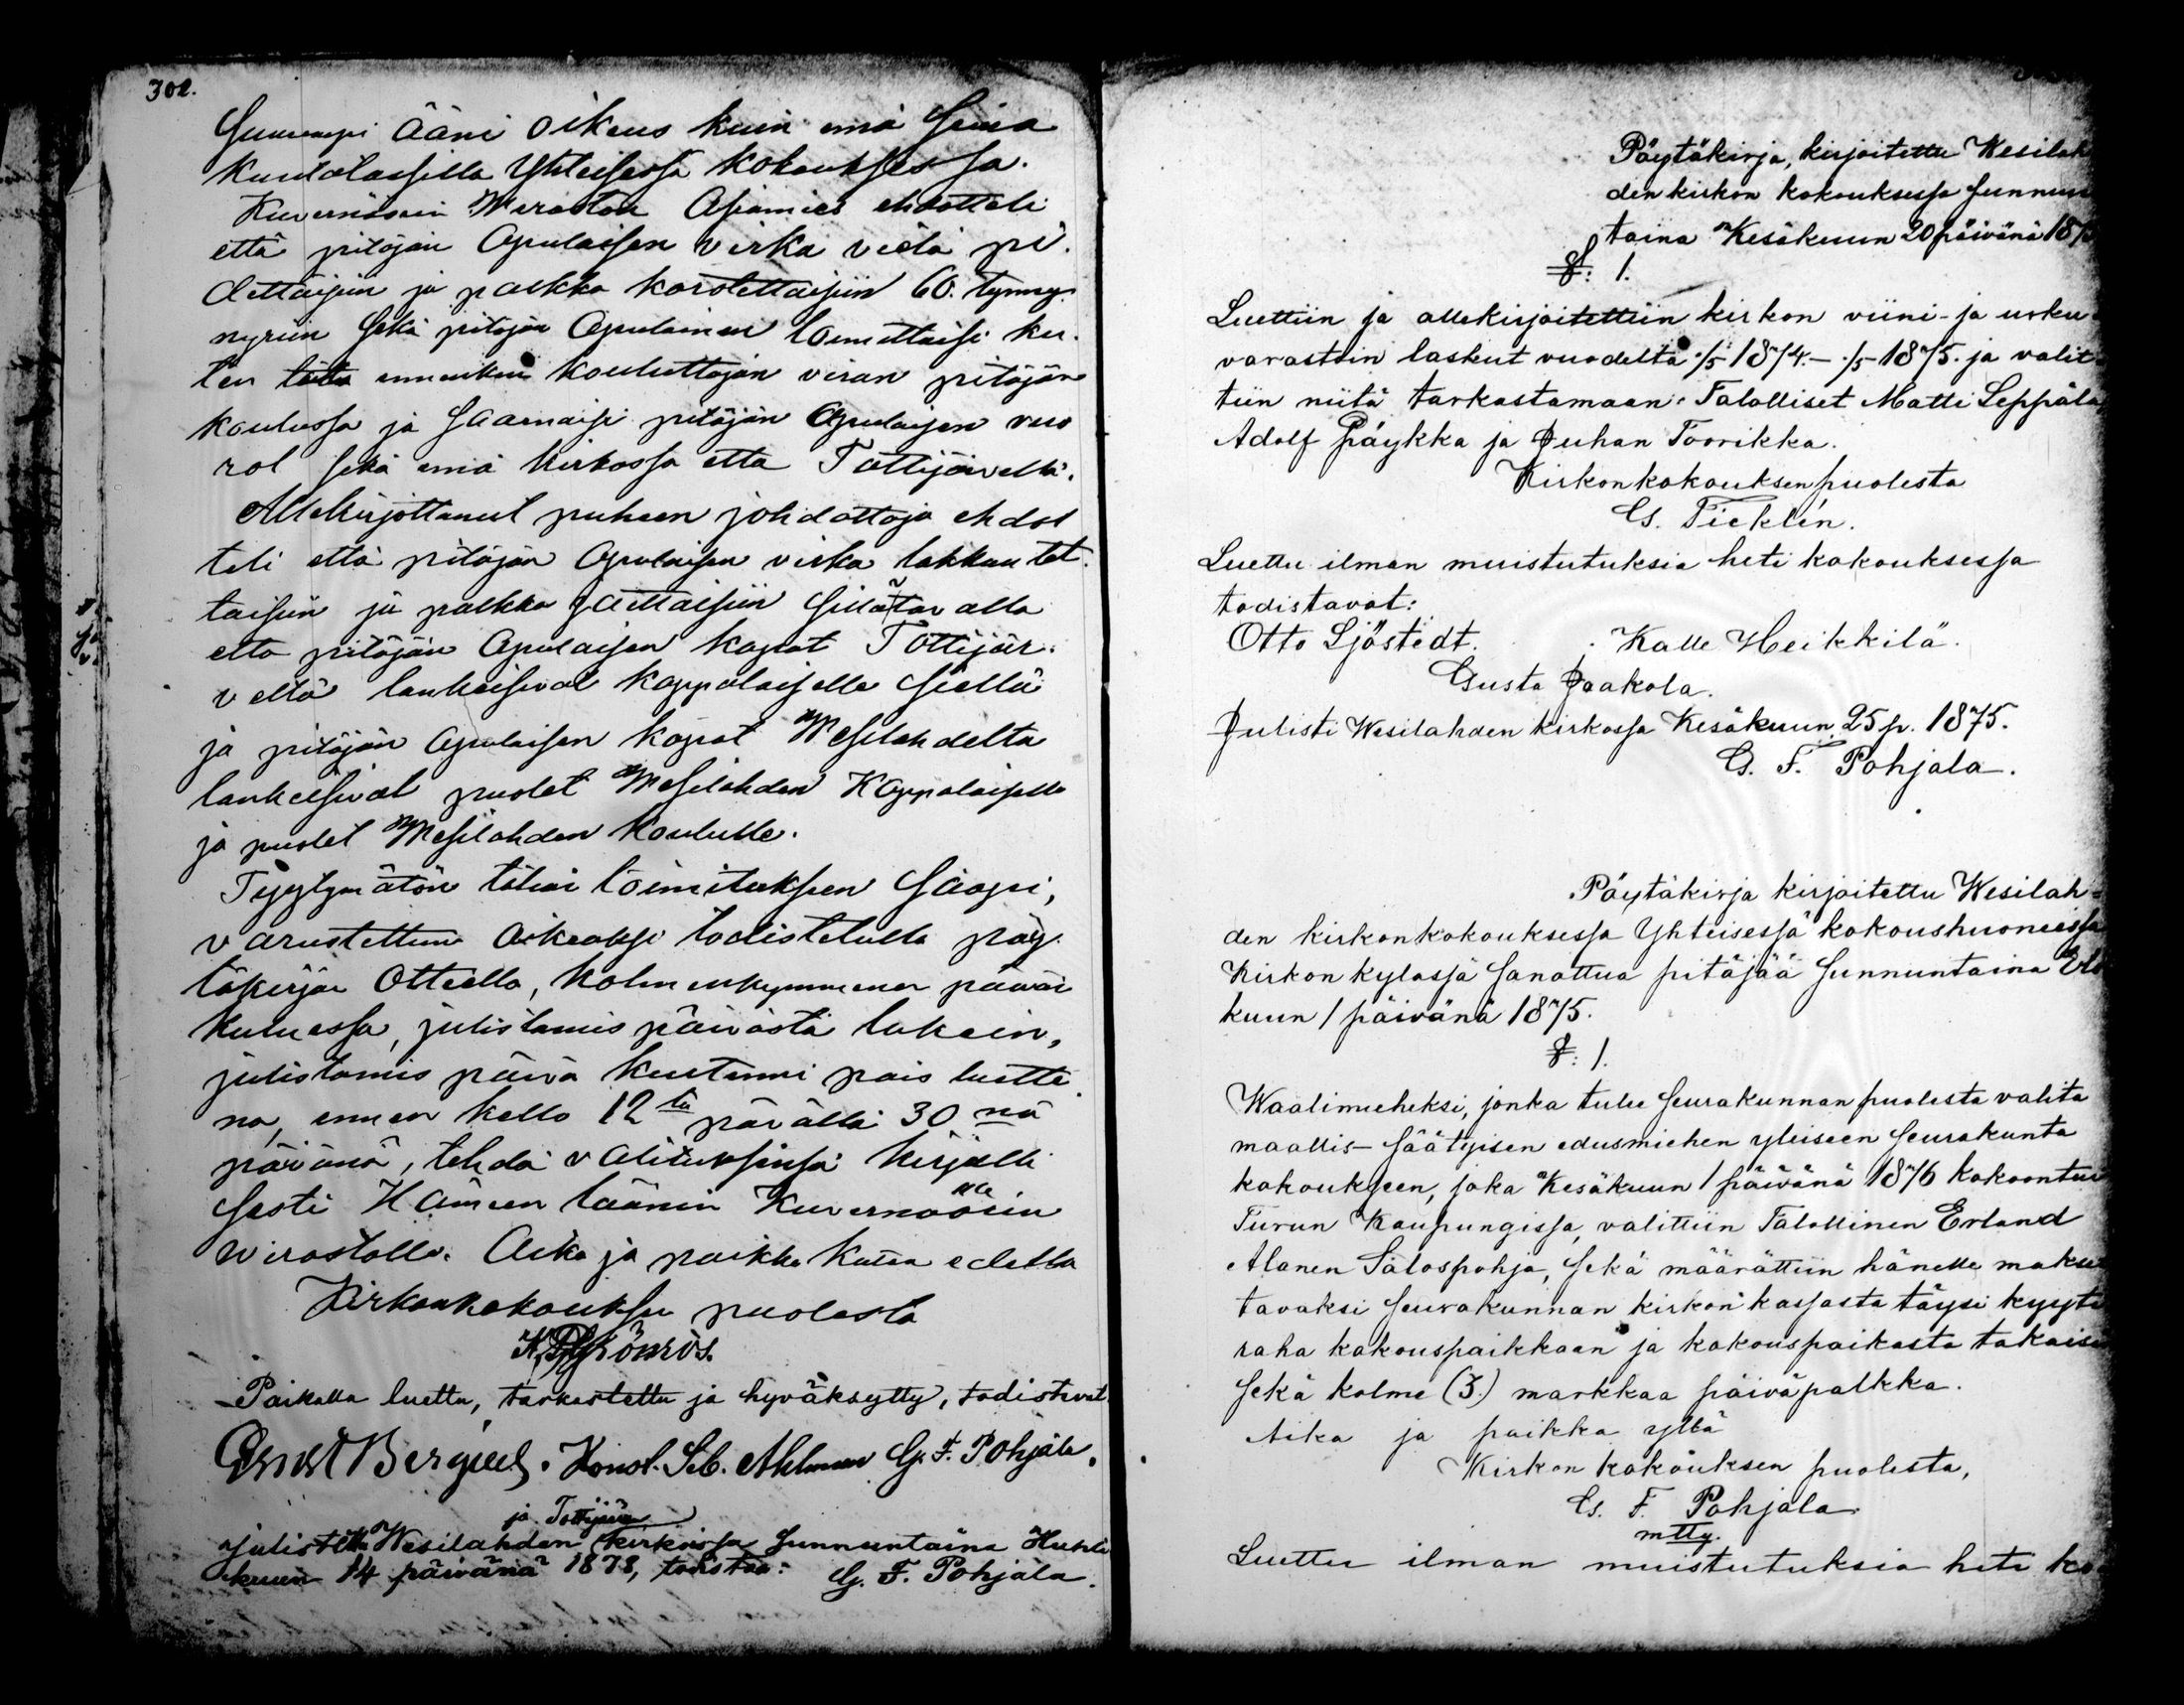 302.
Suurempi ääni oikeus kuin emä Seura
kuntalaisilla Yhteisessä kokouksessa.
Kuvernöörin Wiraston Asiamies ehdotteli
että pitäjän Apulaisen virka vielä pi
dettäisiin ja palkka korotettaisiin 60. tynny
nyriin Sekä pitäjän Apulainen toimittaisi ku
ten ennenkin kouluttajan viran pitäjän
koulussa ja Saarnaisi pitäjän Apulaisen vuo
rot Sekä emä kirkossa että Tottijärvellä.
Allekirjoittanut puheen johdattaja ehdot
teli että pitäjän Apulaisen virka lakkautet
taisiin ja palkka jaettaisiin Sillä tavalla
että pitäjän Apulaisen kapat Tottijär
veltä lankeisivat kappalaiselle Siellä
ja pitäjän Apulaisen kapat Wesilahdelta
lankeisivat puolet Wesilahden Kappalaiselle
ja puolet Wesilahden koululle.
Tyytymätön tähän toimitukseen Saapi,
varustettuna oikeaksi todistetulla pöy
täkirjan Otteella, kolmenkymmenen päivän
kuluessa, julistamis päivästä lukein,
julistamis päivä kuitenni pois luettu
na, ennen kello 12 tä päivällä 30 nä
päivänä, tehdä valituksensa kirjalli
sesti Hämeen läänin Kuvernöörin
Wirastolle. Aika ja paikka kuin edellä
Kirkonkokouksen puolesta
Paikalla luettu, tarkastettu ja hyväksytty, todistavat
Konst. Seb. Ahlman G. F. Pohjala.
ja Tottijärven
Julistettu Wesilahden kirkoissa Sunnuntaina Huhti
kuun 14 päivänä 1878, todistaa: G. F. Pohjala.
Pöytäkirja, kirjoitettu Wesilah
den kirkon kokouksessa Sunnun
taina Kesäkuun 20 päivänä 187
§: 1.
Luettiin ja allekirjoitettiin kirkon viini- ja urku
varastoin laskut vuodelta 1/5 1874. — 1/5 1875. ja valit
tiin niitä tarkastamaan Talolliset Matti Seppälä
Adolf Päykkä ja Juhan Toorikka.
Kirkonkokouksen puolesta
G. Ticklén.
Luettu ilman muistutuksia heti kokouksessa
todistavat:
Otto Sjöstedt. Kalle Heikkilä.
Gusta Jaakola.
Julisti Wesilahden kirkossa Kesäkuun 25 p. 1875.
G. F. Pohjala.
Pöytäkirja kirjoitettu Wesilah=
den kirkonkokouksessa Yhteisessä kokoushuoneessa
Kirkon kylässä Sanottua pitäjää Sunnuntaina Elo
kuun 1 päivänä 1875.
§: 1.
Waalimieheksi, jonka tulee Seurakunnan puolesta valita
maallis- Säätyisen edusmiehen yleiseen Seurakunta
kokoukseen, joka Kesäkuun 1 päivänä 1876 kokoontuu
Turun Kaupungissa, valittiin Talollinen Erland
Alanen Salospohja, Sekä määrättiin hänelle makset
tavaksi Seurakunnan kirkon kassasta täysi kyyti
raha kokouspaikkaan ja kokouspaikasta takaisin
Sekä kolme (3.) markkaa päiväpalkka.
Aika ja paikka yllä
Kirkon kokouksen puolesta,
G. F. Pohjala
mtty.
Luettu ilman muistutuksia heti ko